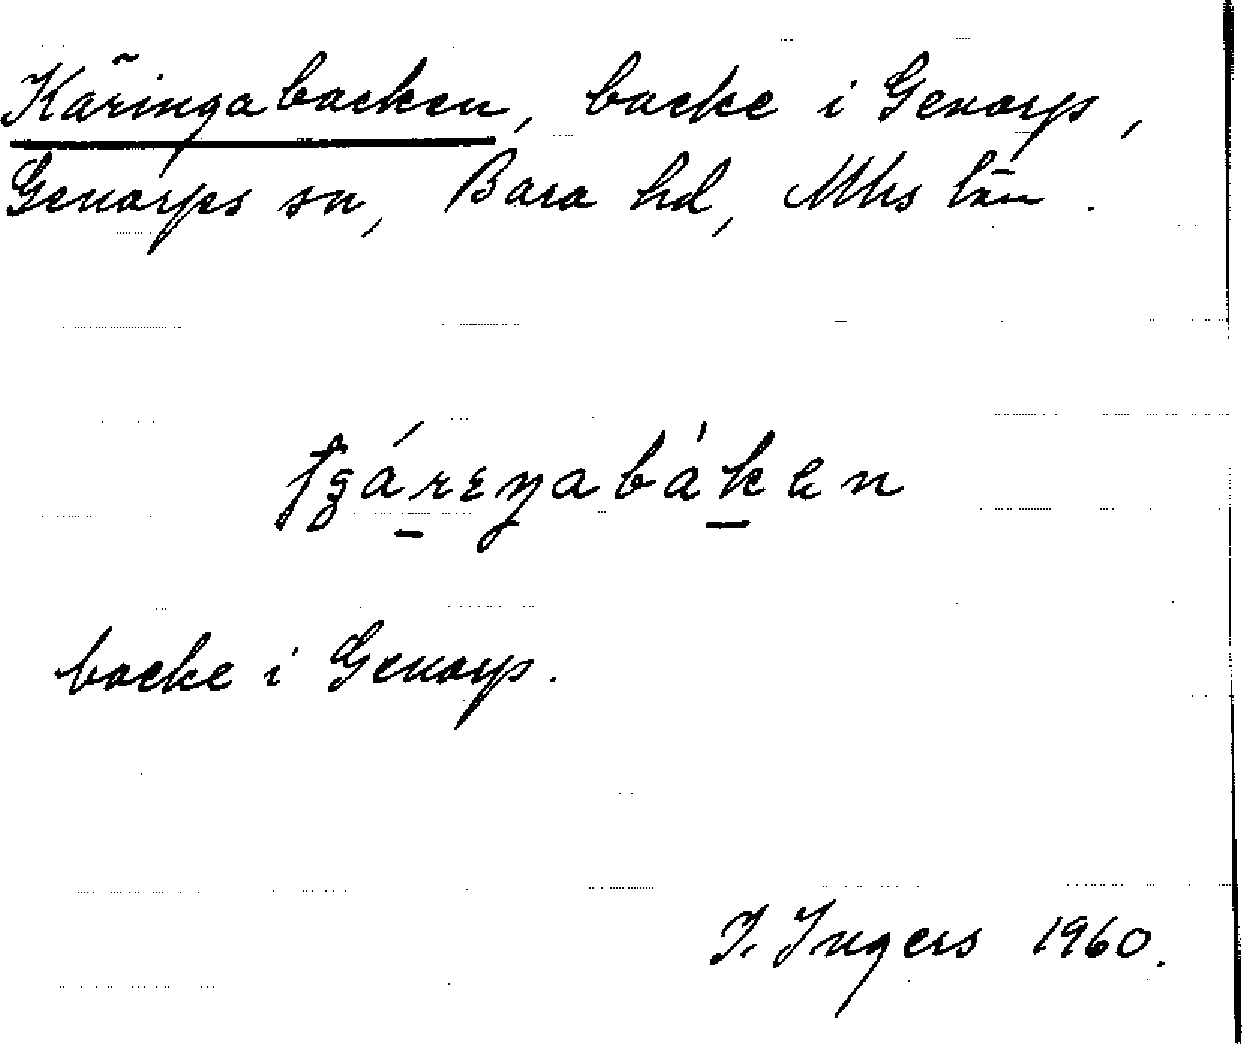 Käringabacken, backe i Genarp,
Genarps sn, Bara hd, Mhs län.
backe i Genarp.
I. Ingers 1960.